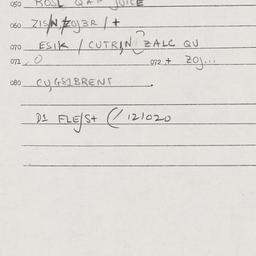 050 ROSL QAP JUICE
060 ZIS/N ZOJ3R / +
070 ESIK / CUTRIN ZALC QU
071 O 072 + ZOJ...
080 CU,GSIBRENT
D1 FLE/S+ (/ 121020